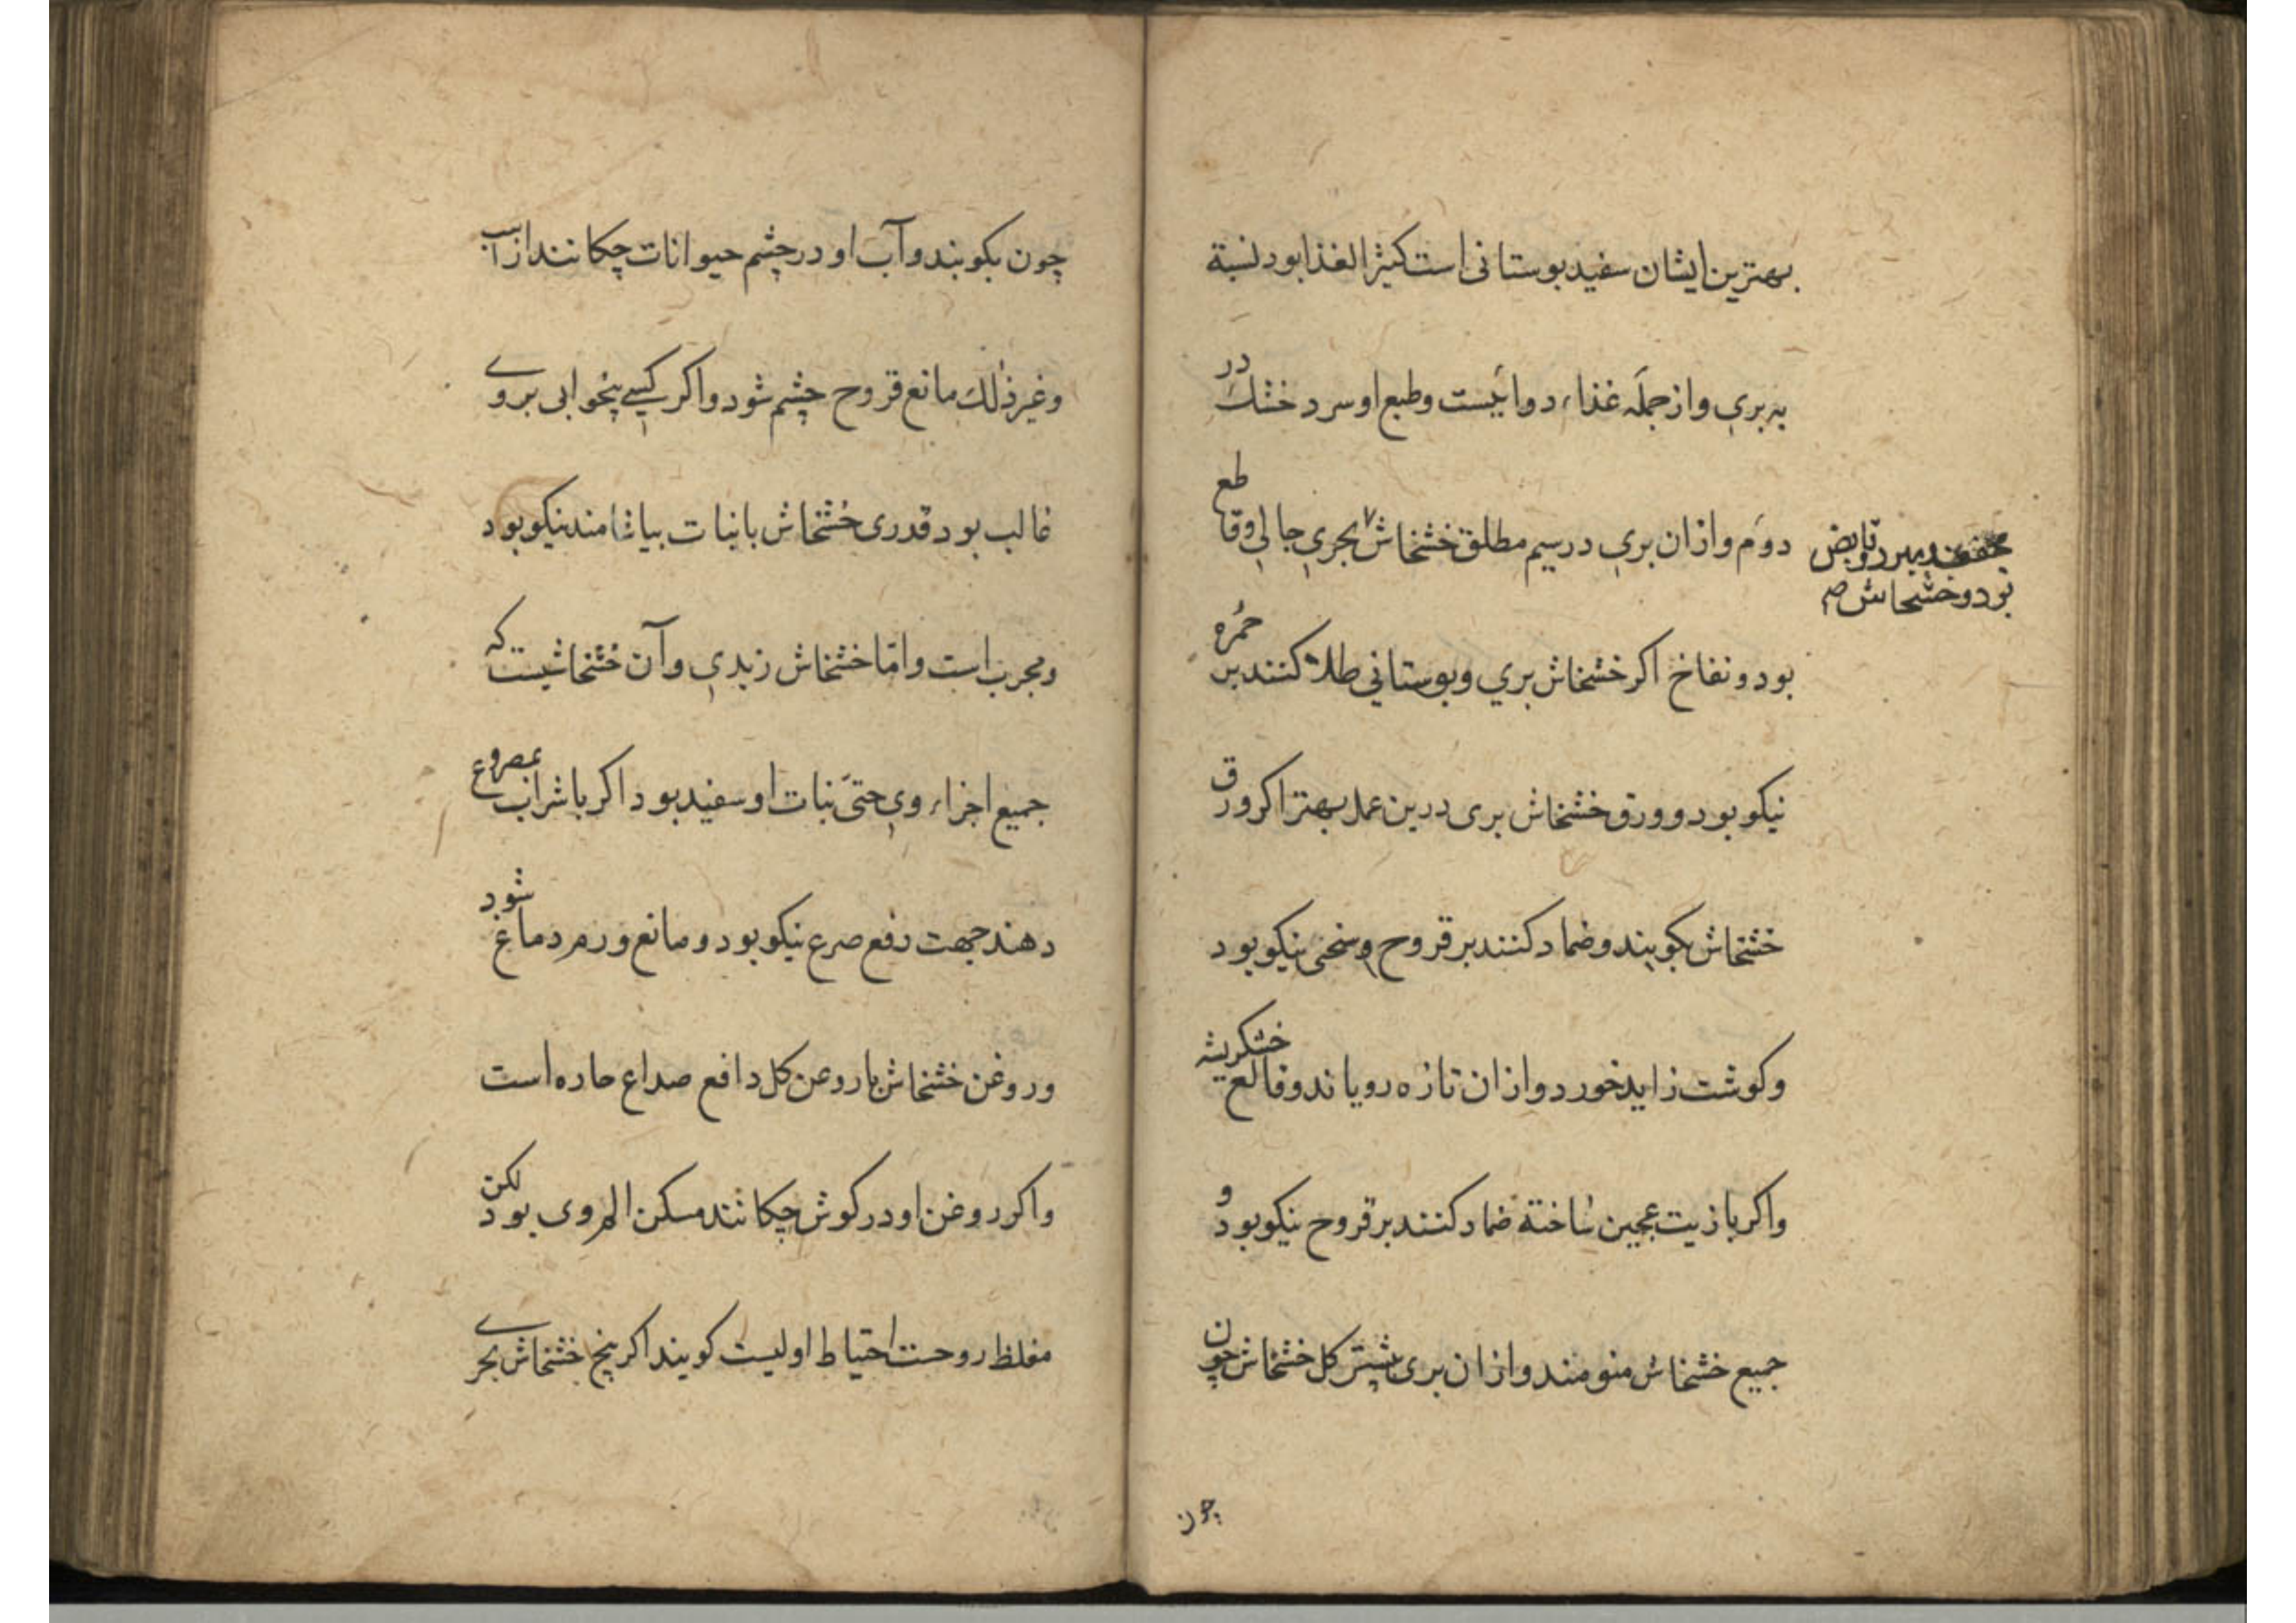 بهترین ایشان سفید بوستانی است کثیر الغذا بود نسبة
به بری و از جمله غذاء دوائیست و طبع او سرد خشک در
دوم و از ان بری در سیم مطلق خشخاش بحری جالی وقاطع
مجفف مبرد و قابض
بود و خشخاش صح
بود و نفاخ اکر خشخاش بري و بوستاني طلا کنند بر حمره
نیکو بود و ورق خشخاش بری درین عمل بهتر اکر ورق
خشخاش بکوبند و ضماد کنند بر قروح وسخی نیکو بود
و کوشت زاید خورد و از ان تازه رویاند و قالع خشکریشه
و اکر با زیت عجین ساخته ضماد کنند بر قروح نیکو بود و
جمیع خشخاش منومند و از ان بری بیشتر کل خشخاش چون
چون
چون بکوبند و آب او در چشم حیوانات چکانند از اسب
و غیر ذلك مانع قروح چشم شود و اکر کسی بیخوابی بروے
غالب بود قدری خشخاش با نبات بیاشامند نیکو بود
و مجرب است و امّا خشخاش زبدی و آن خشخاشیست که
جمیع اجزاء وی حتیّ نبات او سفید بود اکر با شراب بمصروع
دهند جهت رفع صرع نیکو بود و مانع ورم دماغ شود
و روغن خشخاش با روغن کل دافع صداع حاره است
و اکر روغن او در کوش چکانند مسکن الم وی بود لکن
مغلظ روحست احتیاط اولیست کویند اکر بیخ خشخاش بحرے